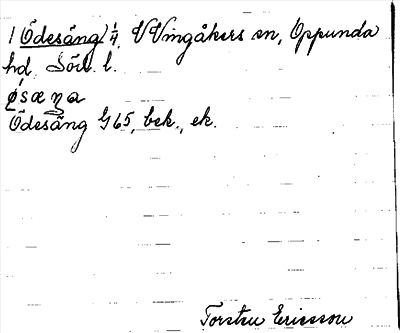 1 Ödesäng 1/4, V Vingåkers sn, Oppunda
hd, Söd. l.
ǿsæŋa
Ödesäng G 65, bek., ek.
Torsten Ericsson